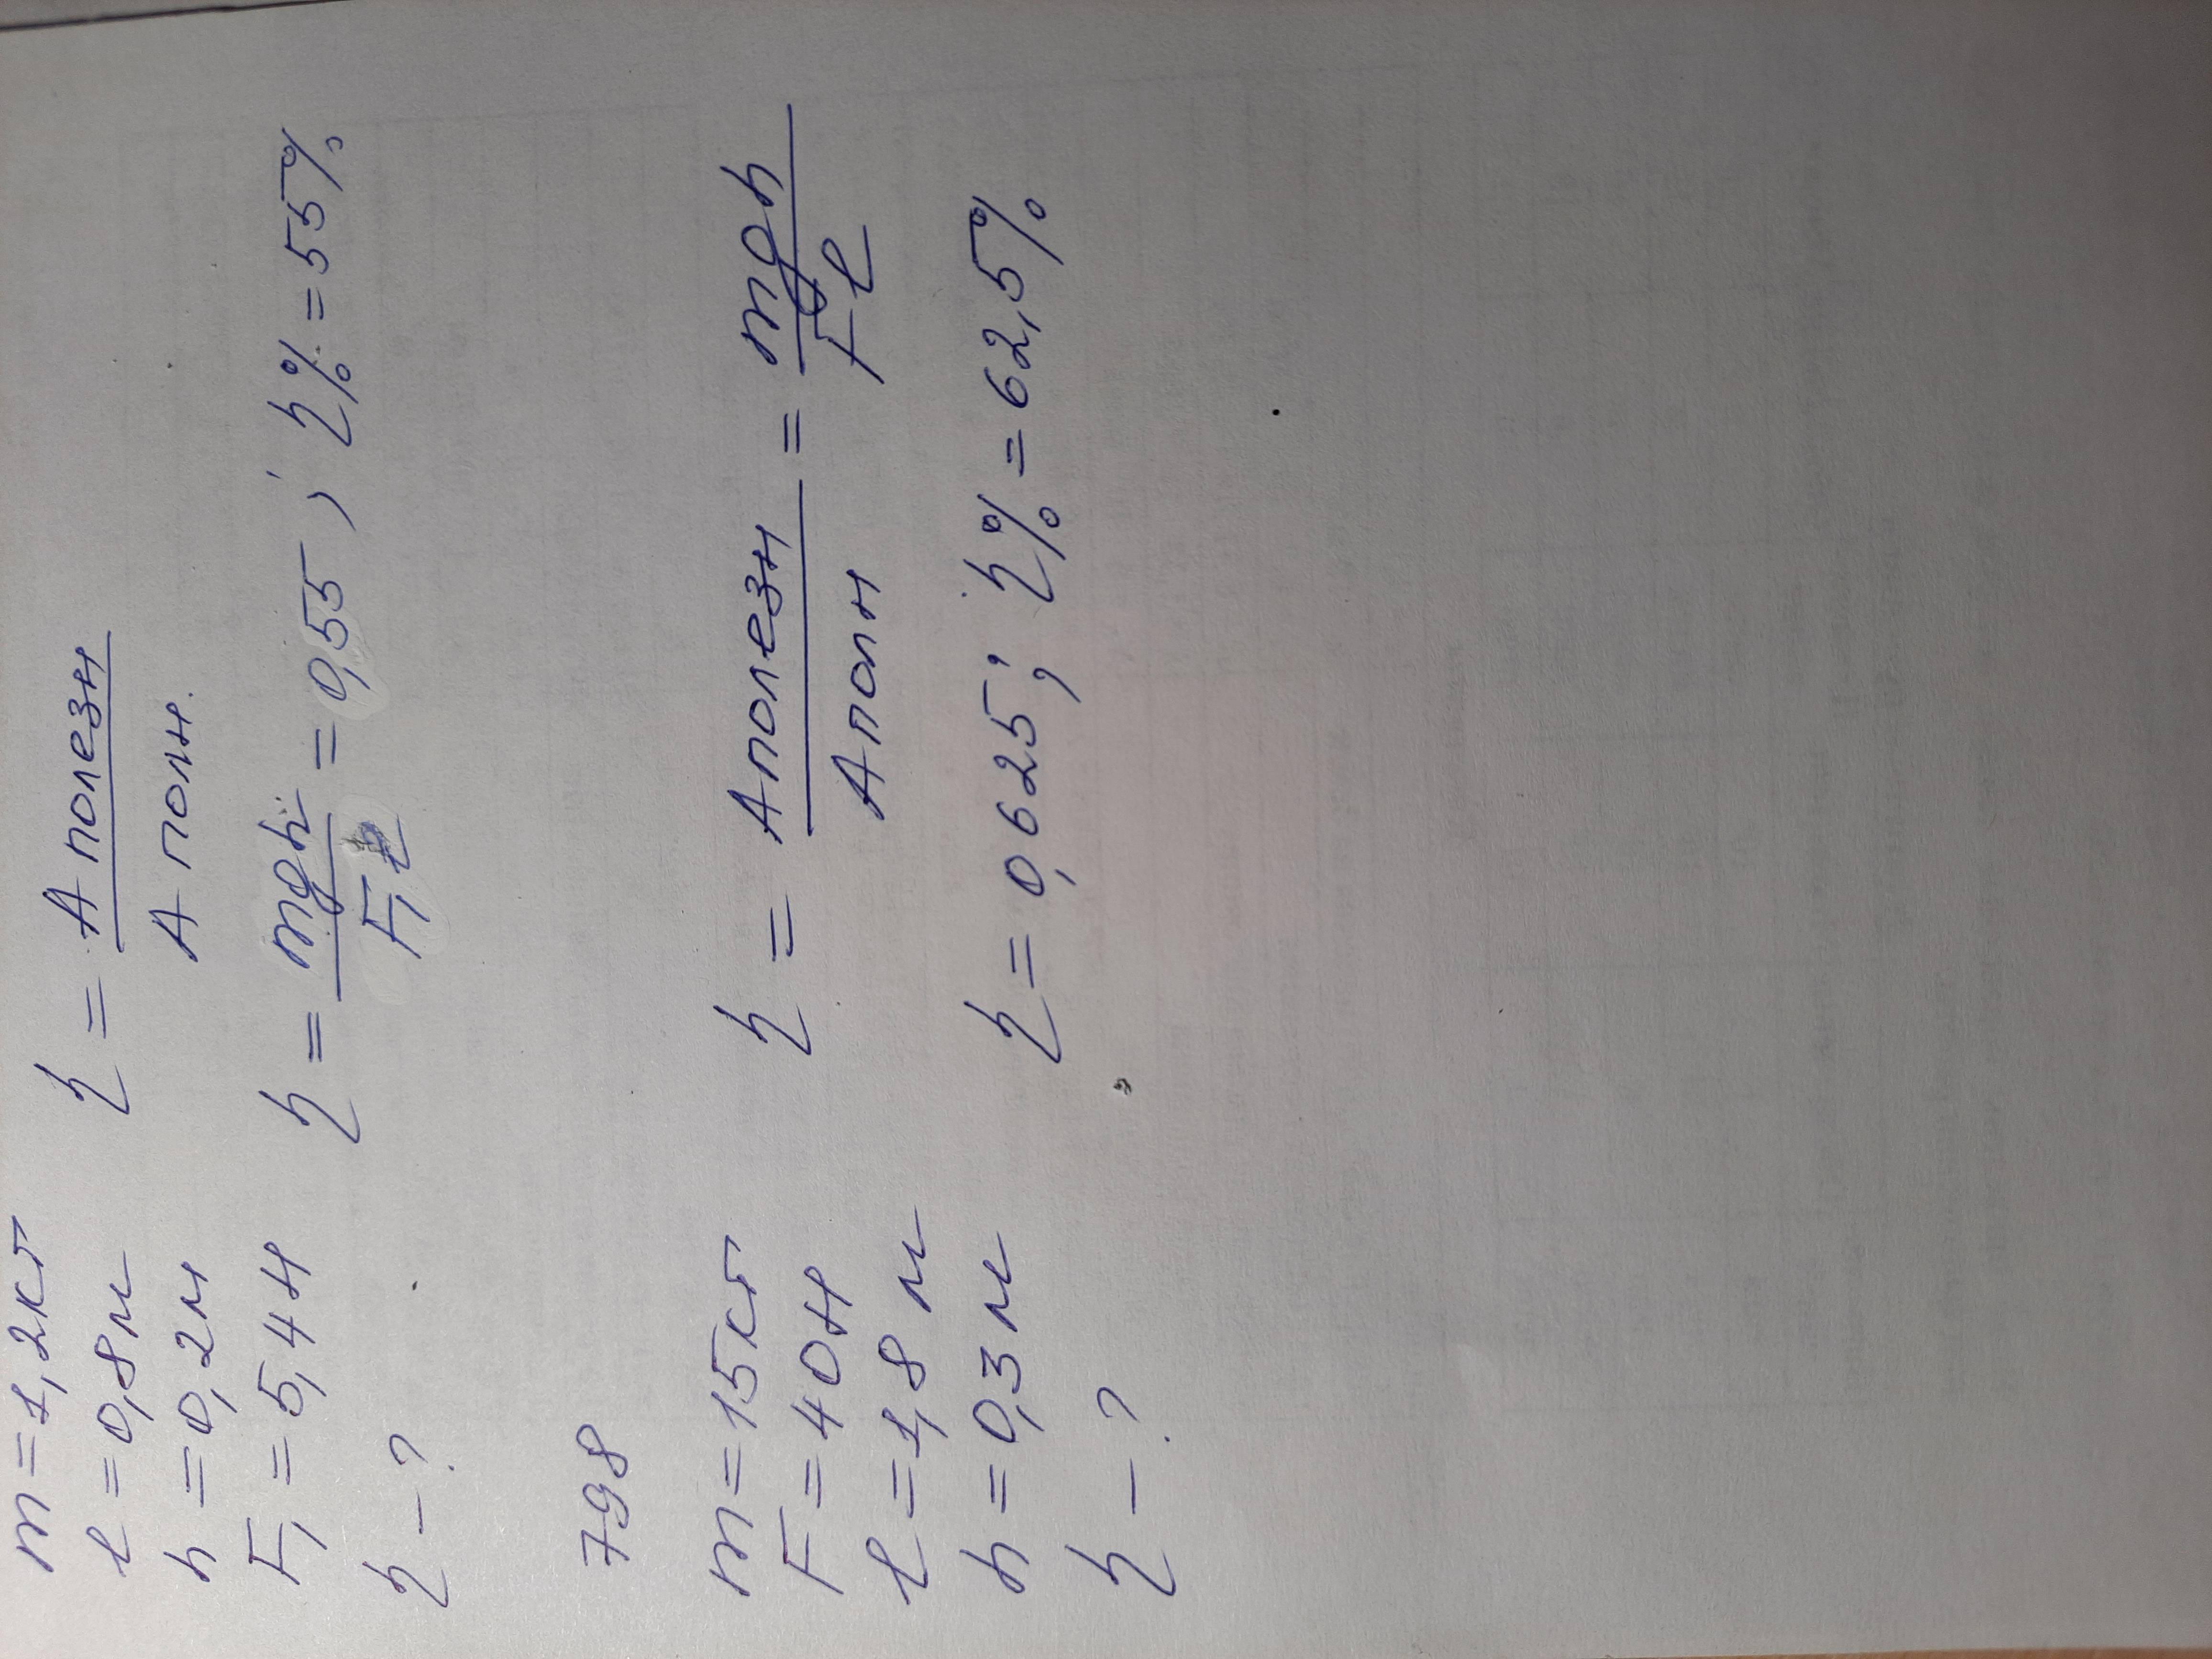 m = 1,2кг
l = 0,8м
h = 0,2м
F₁ = 5,4Н
η – ?
η = A полезн / A полн.
η = mgh / F₁l = 0,55 ; η% = 55%
798
m = 15кг
F = 40Н
l = 1,8 м
h = 0,3 м
η – ?
η = A полезн / A полн = mgh / Fl
η = 0,625 ; η% = 62,5%